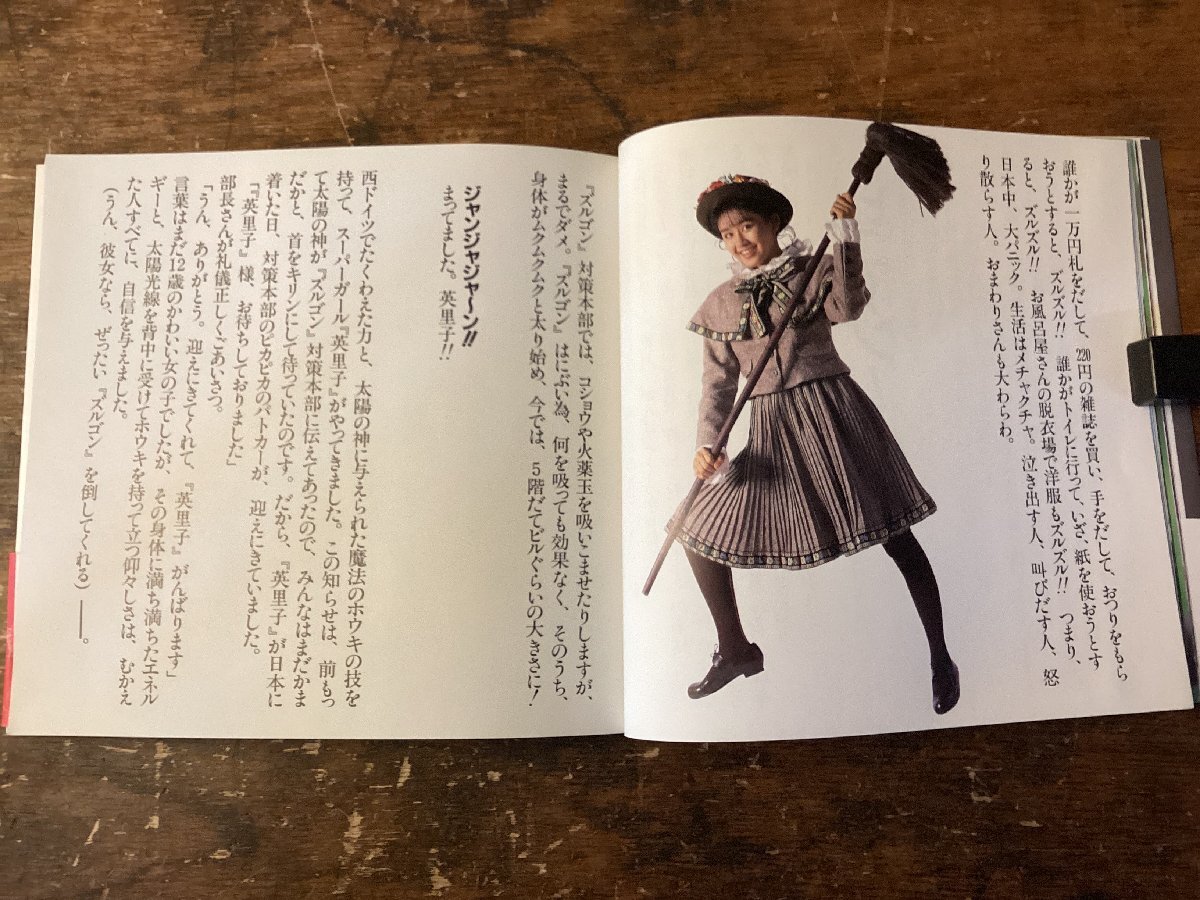 誰かが一万円札をだして、220円の雑誌を買い、手をだして、おつりをもら
おうとすると、ズルズル!! 誰かがトイレに行って、いざ、紙を使おうとす
ると、ズルズル!! お風呂屋さんの脱衣場で洋服もズルズル!! つまり、
日本中、大パニック。生活はメチャクチャ。泣き出す人、叫びだす人、怒
り散らす人。おまわりさんも大わらわ。
『ズルゴン』対策本部では、コショウや火薬玉を吸いこませたりしますが、
まるでダメ。『ズルゴン』はにぶい為、何を吸っても効果なく、そのうち、
身体がムクムクムクと太り始め、今では、5階だてビルぐらいの大きさに!
ジャンジャジャ〜ン!!
まってました。英里子!!
西ドイツでたくわえた力と、太陽の神に与えられた魔法のホウキの技を
持って、スーパーガール『英里子』がやってきました。この知らせは、前もっ
て太陽の神が『ズルゴン』対策本部に伝えてあったので、みんなはまだかま
だかと、首をキリンにして待っていたのです。だから、『英里子』が日本に
着いた日、対策本部のピカピカのパトカーが、迎えにきていました。
「『英里子』様、お待ちしておりました」
部長さんが礼儀正しくごあいさつ。
「うん、ありがとう。迎えにきてくれて、『英里子』がんばります」
言葉はまだ12歳のかわいい女の子でしたが、その身体に満ち満ちたエネル
ギーと、太陽光線を背中に受けてホウキを持って立つ仰々しさは、むかえ
た人すべてに、自信を与えました。
(うん、彼女なら、ぜったい『ズルゴン』を倒してくれる)――。